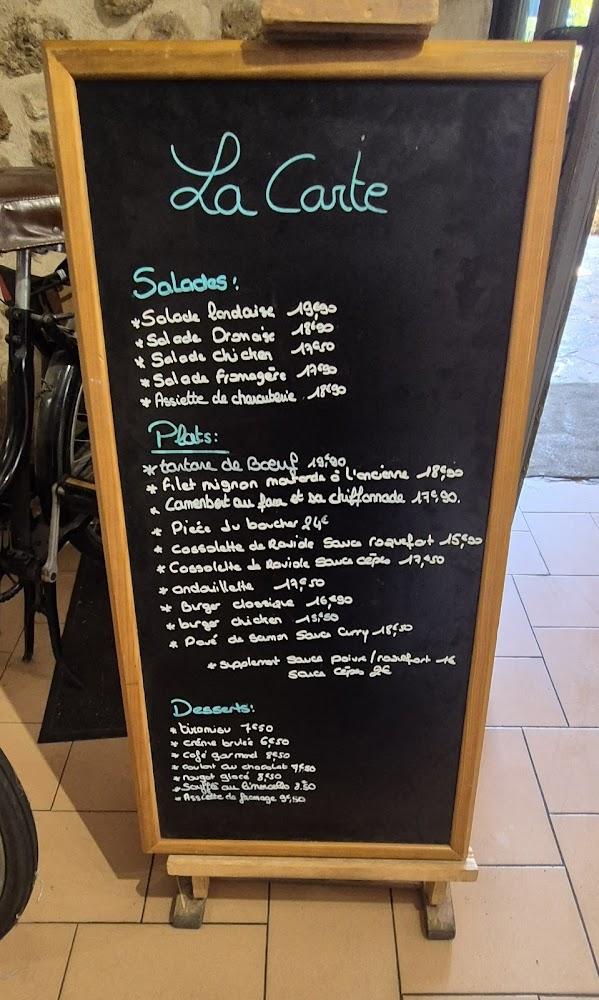 La Carte
Salades:
* Salade landaise 19€90
* Salade Dromoise 18€90
* Salade chicken 17€50
* Salade fromagère 17€90
* Assiette de charcuterie 18€90
Plats:
* tartare de Boeuf 19€90
* filet mignon moutarde à l'ancienne 18€90
* Camembert au four et sa chiffonnade 17€90.
* Pièce du boucher 24€
* Cassolette de Raviole Sauce roquefort 15€90
* Cassolette de Raviole Sauce cèpes 17€50
* andouillette 17€50
* Burger classique 16€90
* burger chicken 15€50
* Pavé de Saumon Sauce Curry 18€50
* Supplement Sauce poivre/roquefort 1€
Sauce cèpes 2€
Desserts:
* tiramisu 7€50
* crème brulée 6€50
* café gourmand 8€50
* coulant au chocolat 7€50
* nougat glacé 8€50
* Soufflé au limoncello 8.50
* Assiette de fromage 9€50